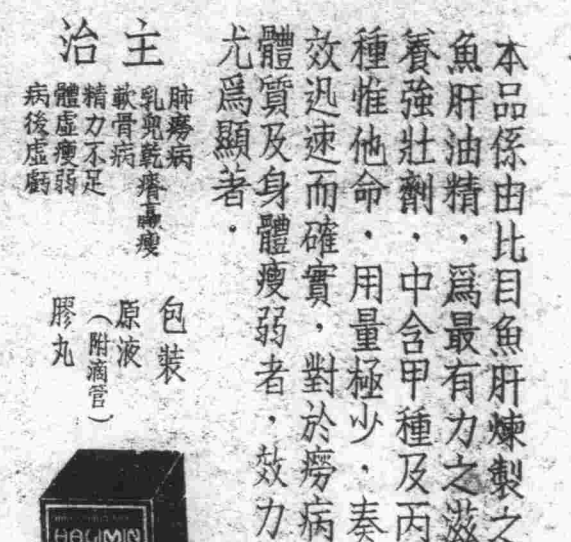 本品係由比目魚肝煉製之
魚肝油精，爲最有力之滋
養強壯劑，中含甲種及丙
種惟他命，用量極少，奏
效迅速而確實，對於癆病
體質及身體瘦弱者，效力
尤爲顯著。
主治
肺癆病
乳兒乾瘠羸瘦
軟骨病
精力不足
體虛瘦弱
病後虛虧
包裝
原液
（附滴管）
膠丸
HALIMIN